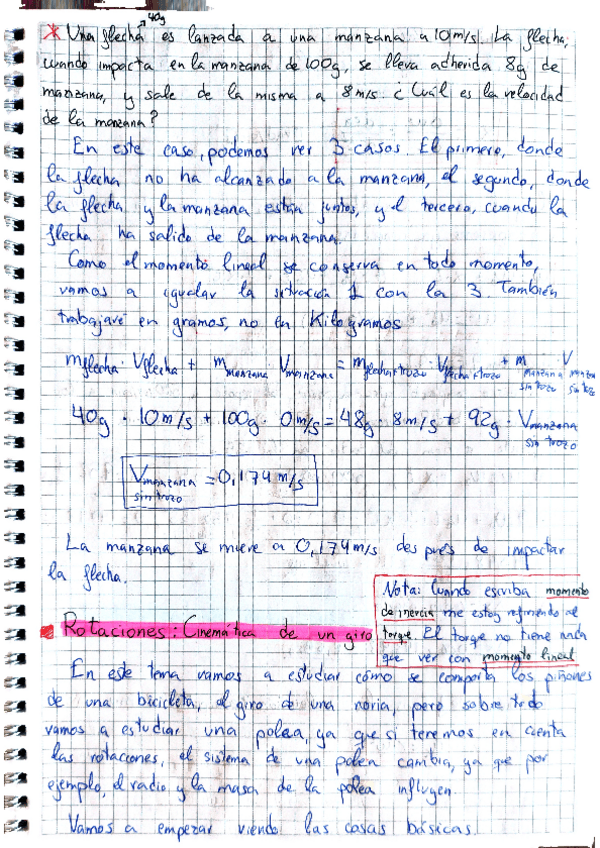 40g
* Una flecha es lanzada a una manzana a 10m/s. La flecha,
cuando impacta en la manzana de 100g, se lleva adherida 8g de
manzana, y sale de la misma a 8m/s. ¿Cuál es la velocidad
de la manzana?
En este caso, podemos ver 3 casos. El primero, donde
la flecha no ha alcanzado a la manzana, el segundo, donde
la flecha y la manzana están juntos, y el tercero, cuando la
flecha ha salido de la manzana.
Como el momento lineal se conserva en todo momento,
vamos a igualar la situación 1 con la 3. También
trabajaré en gramos, no en Kilogramos
m flecha · V flecha + m manzana V manzana = m flecha+trozo · V flecha+trozo + m manzana sin trozo V manzana sin trozo
40g · 10m/s + 100g · 0m/s = 48g · 8m/s + 92g · V manzana sin trozo
V manzana sin trozo = 0,174m/s
La manzana se mueve a 0,174m/s después de impactar
la flecha.
Nota: Cuando escriba momento
de inercia me estoy refiriendo al
torque. El torque no tiene nada
que ver con momento lineal
Rotaciones: Cinemática de un giro
En este tema vamos a estudiar cómo se comporta los piñones
de una bicicleta, el giro de una noria, pero sobre todo
vamos a estudiar una polea, ya que si tenemos en cuenta
las rotaciones, el sistema de una polea cambia, ya que por
ejemplo, el radio y la masa de la polea influyen.
Vamos a empezar viendo las cosas básicas.